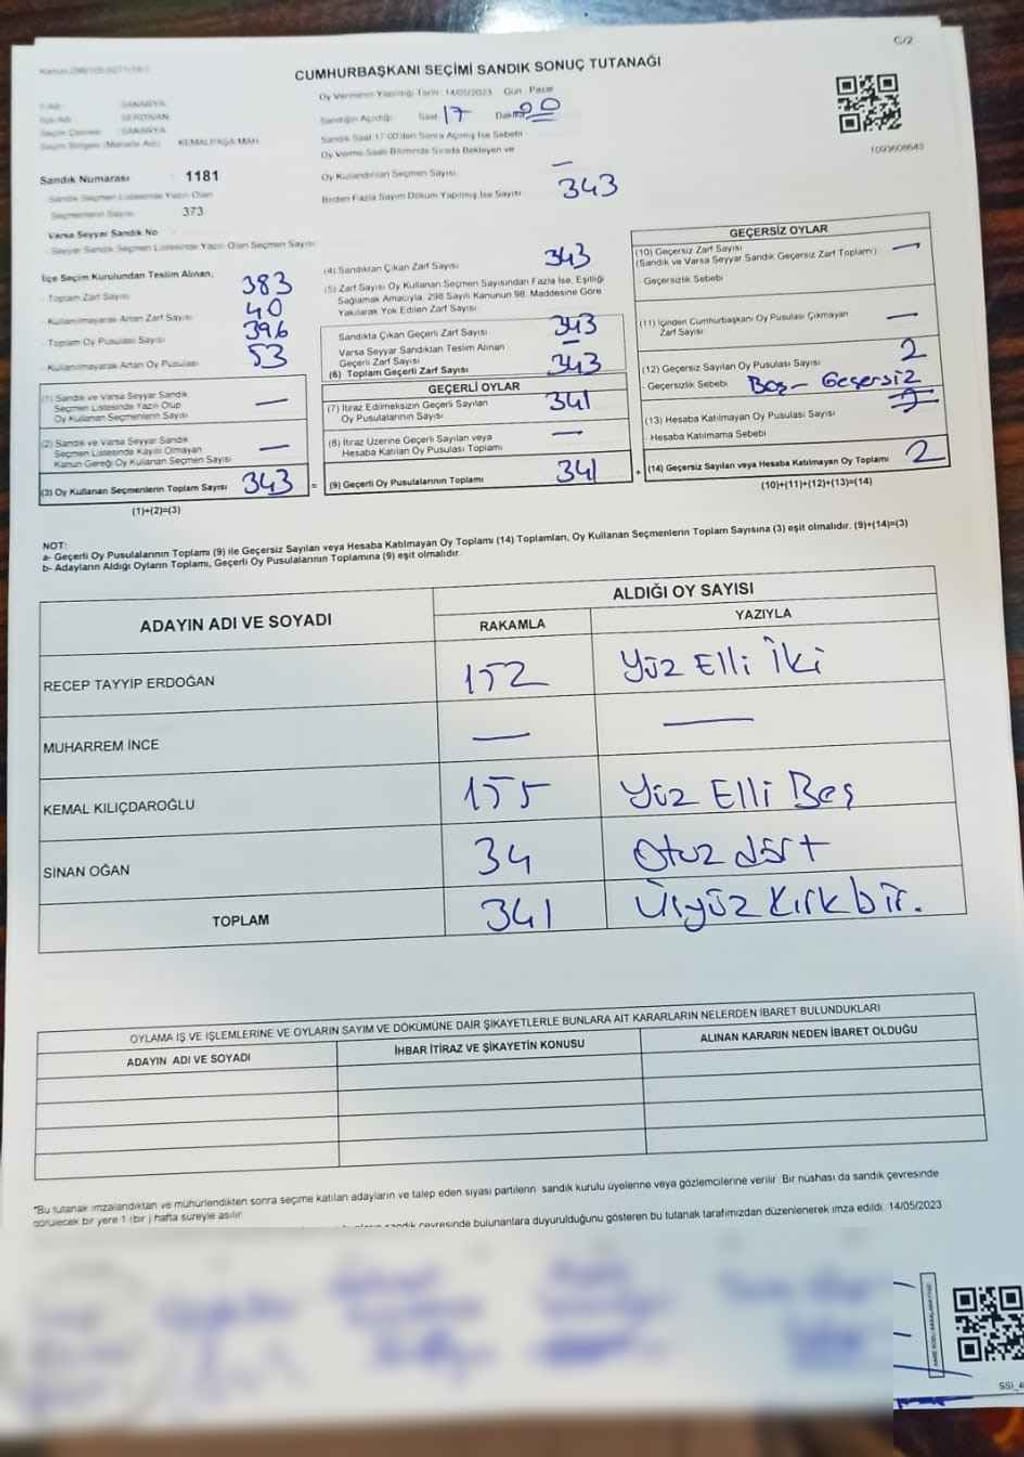 C/2
CUMHURBAŞKANI SEÇİMİ SANDIK SONUÇ TUTANAĞI
Oy Vermenin Yapıldığı Tarih : 14/05/2023 Gün : Pazar
İli Adı : SAKARYA
İlçe Adı : SERDİVAN
Seçim Çevresi : SAKARYA
Seçim Bölgesi (Mahalle Adı) : KEMALPAŞA MAH.
Sandığın Açıldığı Saat 17 Dakika 00
Sandık Saat 17:00'den Sonra Açılmış İse Sebebi
Oy Verme Saati Bitiminde Sırada Bekleyen ve
Oy Kullandırılan Seçmen Sayısı —
Birden Fazla Sayım Döküm Yapılmış İse Sayısı 343
1093608643
Sandık Numarası : 1181
Sandık Seçmen Listesinde Yazılı Olan
Seçmenlerin Sayısı : 373
Varsa Seyyar Sandık No
Seyyar Sandık Seçmen Listesinde Yazılı Olan Seçmen Sayısı
İlçe Seçim Kurulundan Teslim Alınan;
Toplam Zarf Sayısı 383
Kullanılmayarak Artan Zarf Sayısı 40
Toplam Oy Pusulası Sayısı 396
Kullanılmayarak Artan Oy Pusulası 53
(1) Sandık ve Varsa Seyyar Sandık
Seçmen Listesinde Yazılı Olup
Oy Kullanan Seçmenlerin Sayısı —
(2) Sandık ve Varsa Seyyar Sandık
Seçmen Listesinde Kayıtlı Olmayan
Kanun Gereği Oy Kullanan Seçmen Sayısı —
(3) Oy Kullanan Seçmenlerin Toplam Sayısı 343 =
(1)+(2)=(3)
(4) Sandıktan Çıkan Zarf Sayısı 343
(5) Zarf Sayısı Oy Kullanan Seçmen Sayısından Fazla İse, Eşitliği
Sağlamak Amacıyla, 298 Sayılı Kanunun 98. Maddesine Göre
Yakılarak Yok Edilen Zarf Sayısı
Sandıkta Çıkan Geçerli Zarf Sayısı 343
Varsa Seyyar Sandıktan Teslim Alınan
Geçerli Zarf Sayısı —
(6) Toplam Geçerli Zarf Sayısı 343
GEÇERLİ OYLAR
(7) İtiraz Edilmeksizin Geçerli Sayılan
Oy Pusulalarının Sayısı 341
(8) İtiraz Üzerine Geçerli Sayılan veya
Hesaba Katılan Oy Pusulası Toplamı —
(9) Geçerli Oy Pusulalarının Toplamı 341 +
GEÇERSİZ OYLAR
(10) Geçersiz Zarf Sayısı
(Sandık ve Varsa Seyyar Sandık Geçersiz Zarf Toplamı) —
Geçersizlik Sebebi
(11) İçinden Cumhurbaşkanı Oy Pusulası Çıkmayan
Zarf Sayısı —
(12) Geçersiz Sayılan Oy Pusulası Sayısı 2
Geçersizlik Sebebi Boş - Geçersiz
(13) Hesaba Katılmayan Oy Pusulası Sayısı
Hesaba Katılmama Sebebi
(14) Geçersiz Sayılan veya Hesaba Katılmayan Oy Toplamı 2
(10)+(11)+(12)+(13)=(14)
NOT:
a- Geçerli Oy Pusulalarının Toplamı (9) ile Geçersiz Sayılan veya Hesaba Katılmayan Oy Toplamı (14) Toplamları, Oy Kullanan Seçmenlerin Toplam Sayısına (3) eşit olmalıdır. (9)+(14)=(3)
b- Adayların Aldığı Oyların Toplamı, Geçerli Oy Pusulalarının Toplamına (9) eşit olmalıdır.
ADAYIN ADI VE SOYADI
ALDIĞI OY SAYISI
RAKAMLA YAZIYLA
RECEP TAYYİP ERDOĞAN 152 Yüz Elli İki
MUHARREM İNCE — —
KEMAL KILIÇDAROĞLU 155 Yüz Elli Beş
SİNAN OĞAN 34 Otuz dört
TOPLAM 341 Üçyüz Kırk bir.
OYLAMA İŞ VE İŞLEMLERİNE VE OYLARIN SAYIM VE DÖKÜMÜNE DAİR ŞİKAYETLERLE BUNLARA AİT KARARLARIN NELERDEN İBARET BULUNDUKLARI
ADAYIN ADI VE SOYADI İHBAR İTİRAZ VE ŞİKAYETİN KONUSU ALINAN KARARIN NEDEN İBARET OLDUĞU
*Bu tutanak imzalandıktan ve mühürlendikten sonra seçime katılan adayların ve talep eden siyasi partilerin sandık kurulu üyelerine veya gözlemcilerine verilir. Bir nüshası da sandık çevresinde
görülecek bir yere 1 (bir) hafta süreyle asılır.
sandık çevresinde bulunanlara duyurulduğunu gösteren bu tutanak tarafımızdan düzenlenerek imza edildi. 14/05/2023